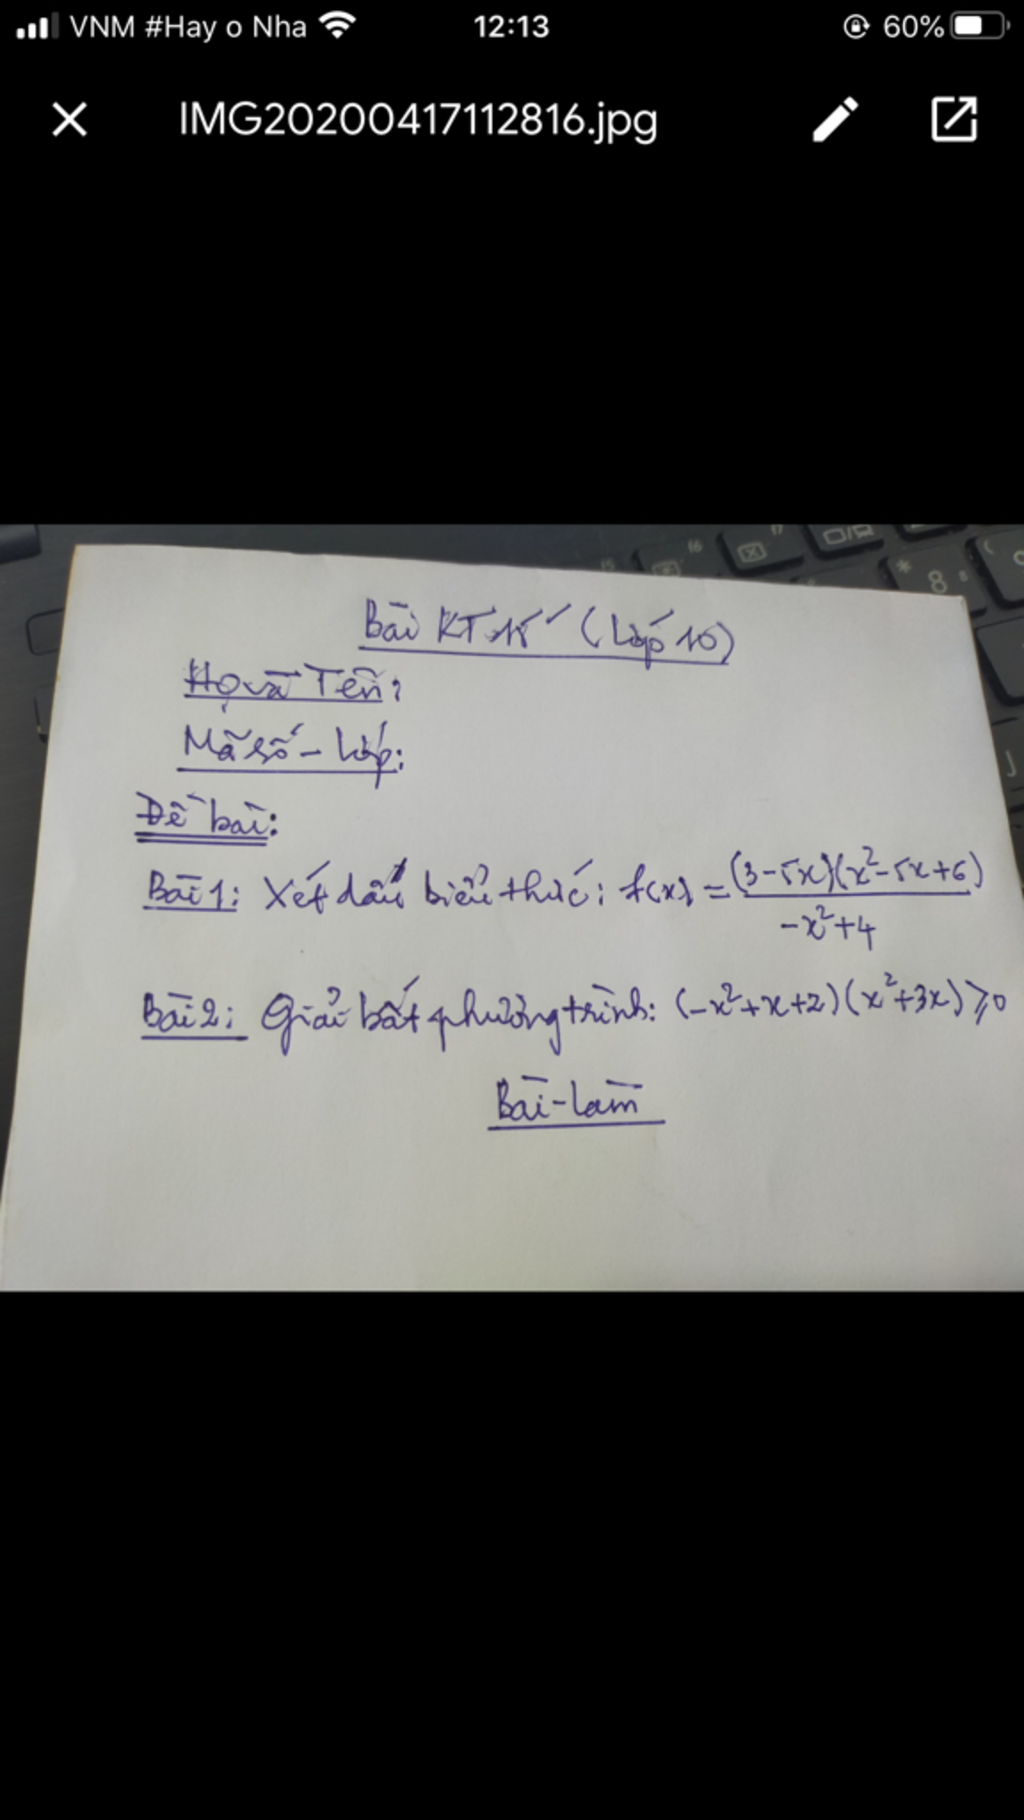 VNM #Hay o Nha 12:13 60%
IMG20200417112816.jpg
Bài KT 15' (Lớp 10)
Họ và Tên:
Mã số - Lớp:
Đề bài:
Bài 1: Xét dấu biểu thức: f(x) = (3-5x)(x²-5x+6) / -x²+4
Bài 2: Giải bất phương trình: (-x²+x+2)(x²+3x) ≥ 0
Bài - làm